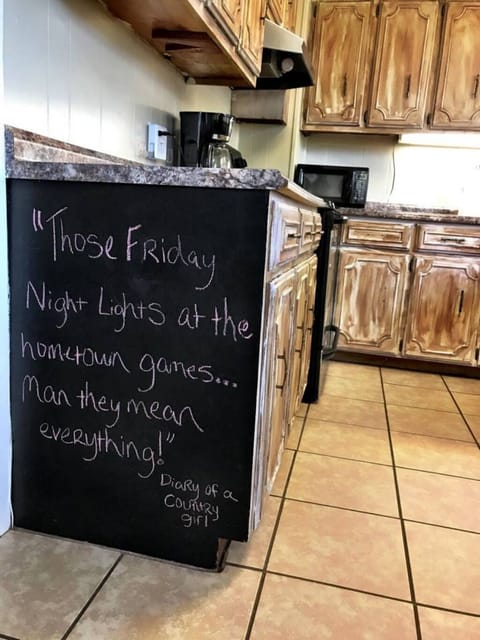 "Those Friday
Night Lights at the
hometown games...
Man they mean
everything!"
Diary of a
Country
girl